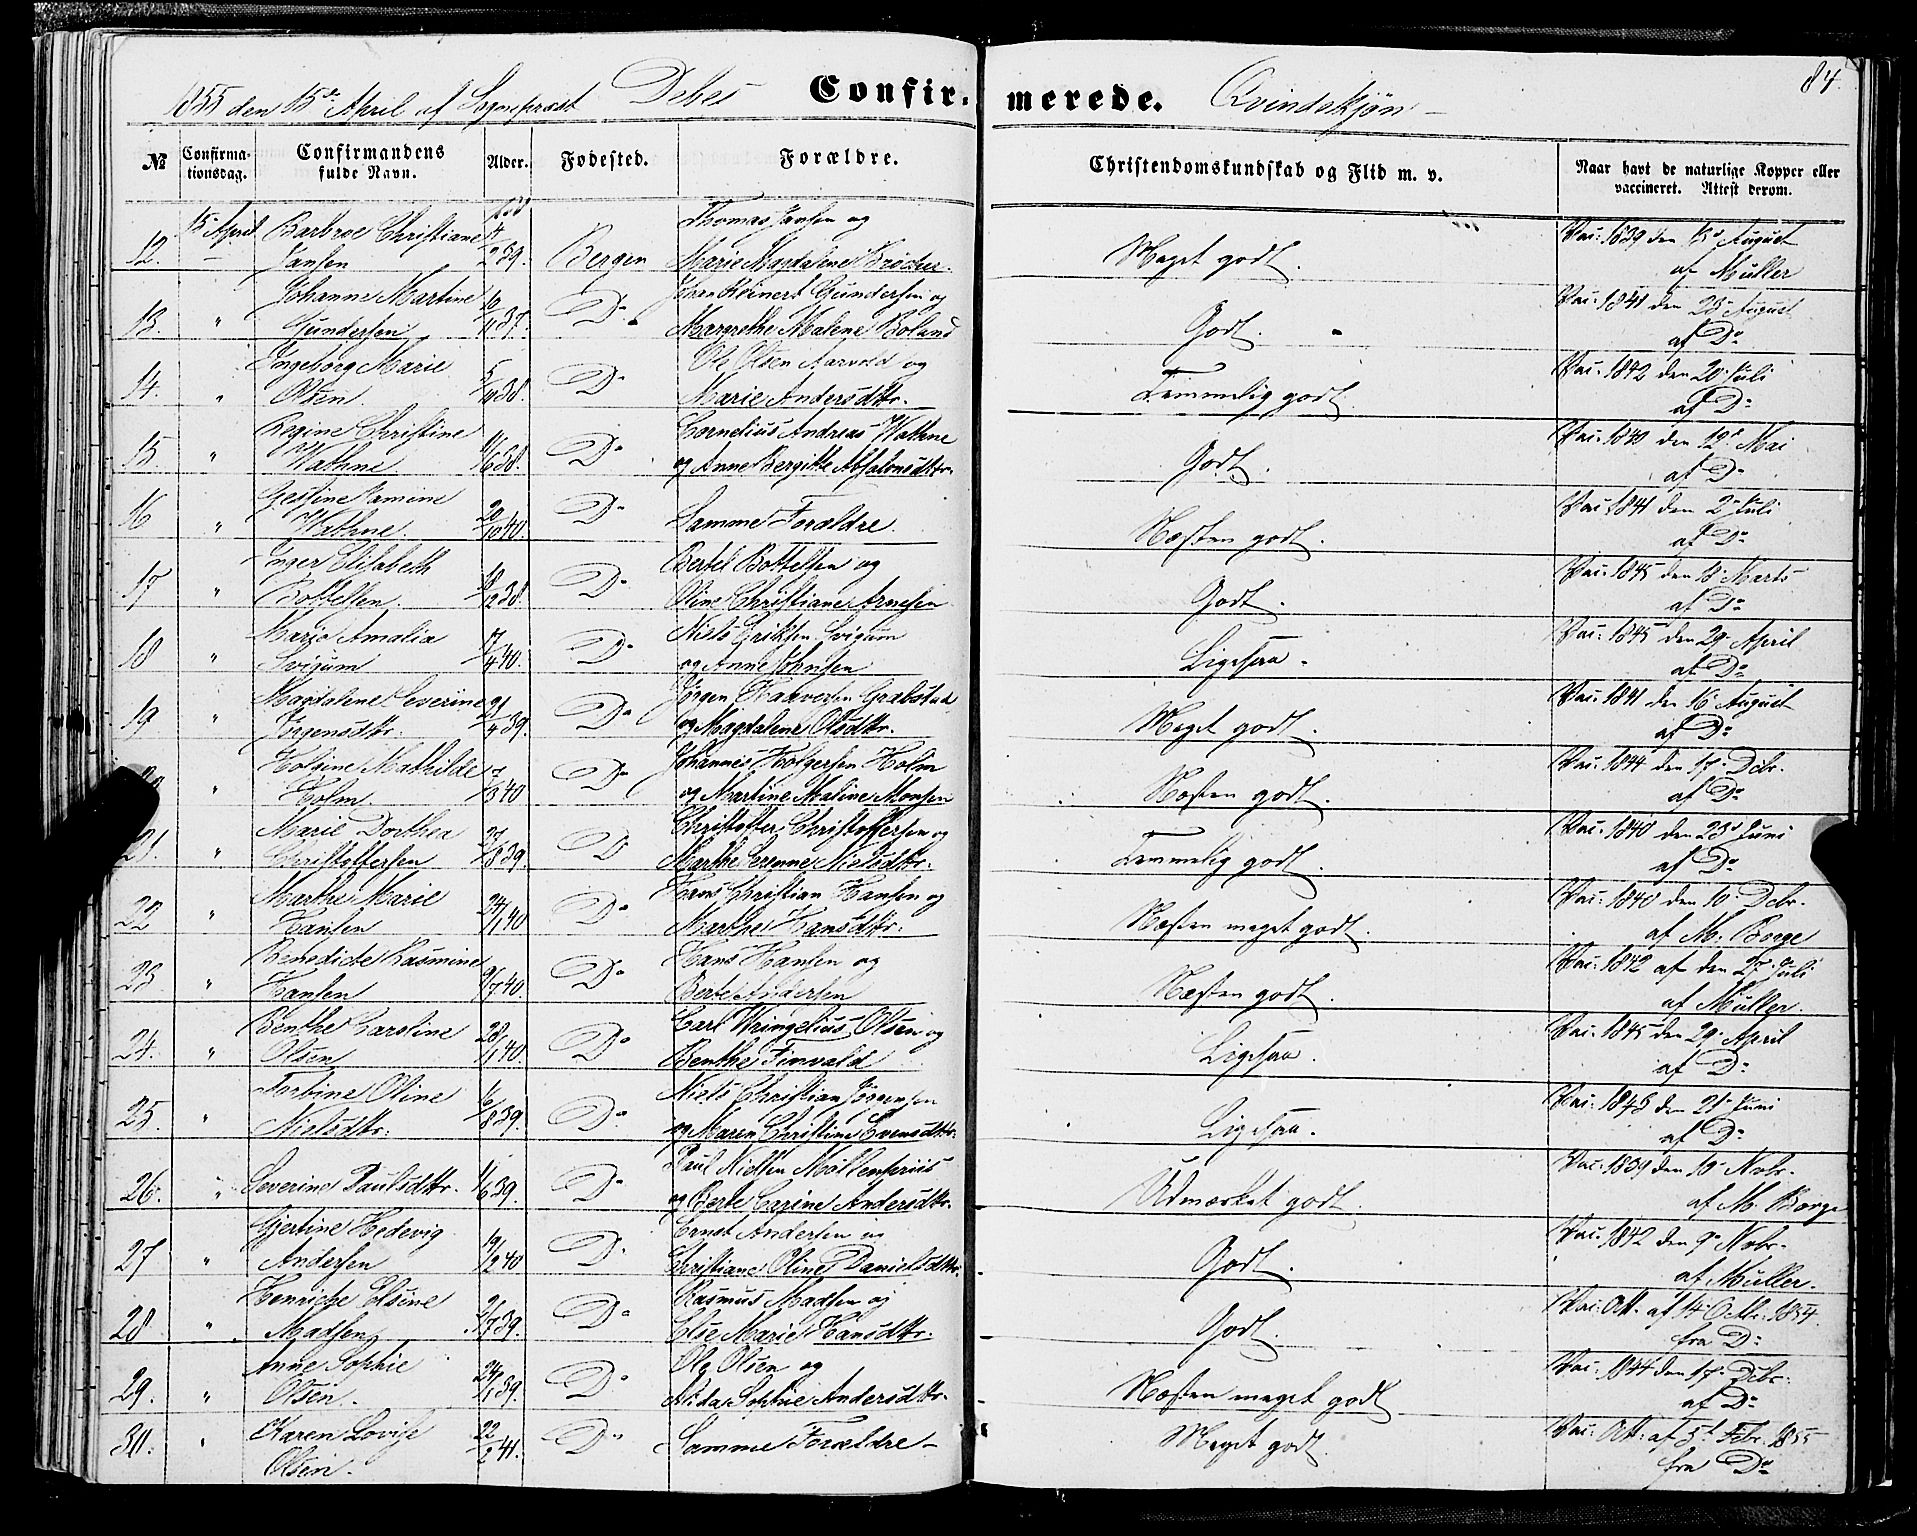 1855 den 15de April af Sogneprest Debes Confirmerede. Qvindekjøn 84.
№ Confirmationsdag. Confirmandens fulde Navn. Alder. Fødested. Forældre. Christendomskundskab og Flid m. v. Naar havt de naturlige Kopper eller vaccineret. Attest derom.
15 April Barbroe Christiane Thomas Jansen og Vac: 1839 den 13de August
12. Jansen 39. Bergen Marie Magdalene Meget godt. af Müller
Johanne Martine 10 Johan Reinert Gundersen og Vac: 1841 den 23de August
13. " Gundersen 11 37. Do Margrethe Malene Boland Godt. af Do
Ingeborg Marie 5 Ole Olsen Aarvold og Vac: 1842 den 20de Juli
14. " Olsen 38. Do Marie Andersdtr. Temmelig godt. af Do
Regine Christine 11 Cornelius Andreas Wathne Vac: 1840 den 12te Mai
15. " Wathne 6 38. Do og Anne Bergitte Absalonsdtr. Godt. af Do
Gessine Jamine 20 Vac: 1841 den 2de Juli
16 " Wathne. 12 40. Do Samme Forældre. Næsten godt. af Do
Inger Elisabeth 18 Bertel Bottelsen og Vac: 1845 den 18 Marts
17 " Bottelsen. 2 38. Do Oline Christiane Arnesen Godt. af Do
Marie Amalia 17 Niels Eriksen Svigum Vac: 1845 den 29. April
18 " Svigum 4 40. Do og Anne Johnsen Ligesaa. af Do
Magdalene Severine 21 Jørgen Haaversen Grabstad Vac: 1841 den 16 August
19 " Jørgensdtr. 4 39. Do og Magdalene Olsdtr. Meget godt. af Do
Holgine Mathilde 7 Johannes Holgersen Holm Vac: 1844 den 17. Dcbr.
" Holm. 3 40 Do og Martine Maline Monsen Næsten godt. af Do
Marie Dorthea 27 Christoffer Christoffersen og Vac: 1840 den 23de Juni
21. " Christoffersen 8 39. D Marthe Serenne Nielsdtr. Temmelig godt. af Do
Marthe Marie 24 Hans Christian Hansen og Vac: 1840 den 10. Dcbr.
22 " Hansen 1 40. Do Marthe Hansdtr: Næsten meget godt. af M: Borge
Benedicte Rasmine 9 Hans Hansen og Vac: 1842 af den 27de Juli
23. " Hansen 7 40. Do Berte Andersen Næsten godt. af Müller.
Benthe Caroline 28 Carl Wringelius Olsen og Vac: 1845 den 29. April
24. " Olsen 1 40. Do Benthe Finvald Ligesaa. af Do
Torbine Oline 6 Niels Christian Jörgensen Vac: 1843 den 21. Juni
25. " Nielsdtr: 8 39. Do og Maren Christine Svensdtr. Ligesaa. af Do
11 Paul Nielsen Möllenpriis Vac: 1839 den 10. Nobr.
26. " Severine Paulsdtr. 6 39. Do og Berte Carine Andersdtr. Udmærket godt. af M. Borge
Gjertine Hedevig 19 Ernst Andersen og Vac: 1842 den 9de Nobr.
27 " Andersen 2 40 Do Christiane Oline Danielsdtr. Godt. af Müller.
Henricke Elsine 9 Rasmus Madsen og Vac: Att. af 14. Octbr. 1854.
28 " Madsen 7 39. Do Else Marie Hansdtr. Godt. fra Do
Anne Sophie 24 Ole Olsen og Vac: 1844 den 17. Dcbr.
29. " Olsen. 1 39. Do Alida Sophie Andersdtr. Næsten meget godt. af Do
Karen Lovise 22 Vac: Att: af 5t Febr. 1855
30. " Olsen. 2 41. Do Samme Forældre. Meget godt. fra Do